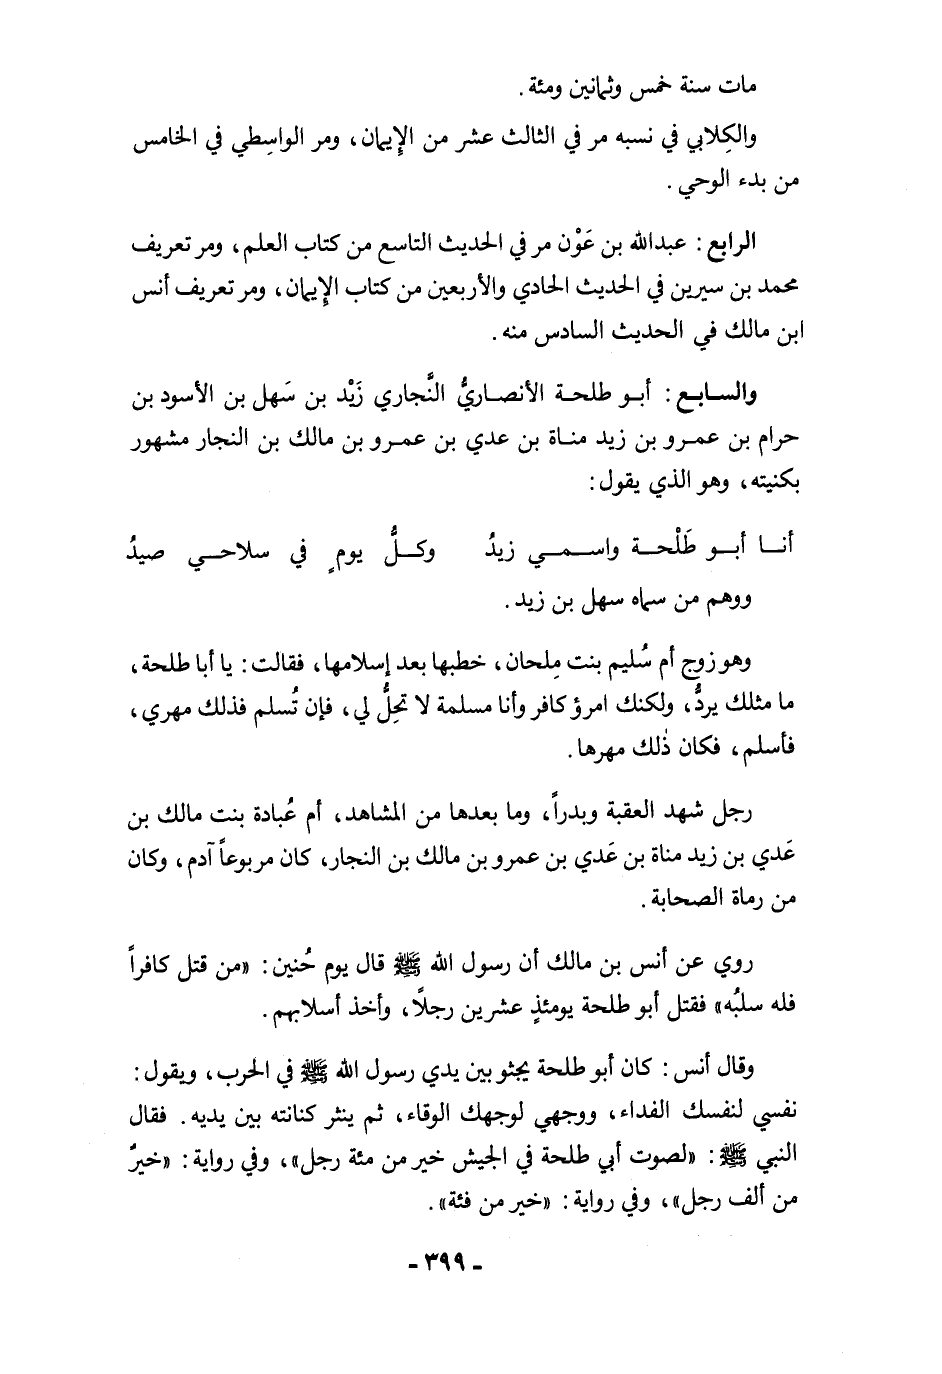 مات سنة خمس وثمانين ومئة.
والكِلابي في نسبه مر في الثالث عشر من الإِيمان، ومر الواسِطي في الخامس
من بدء الوحي.
الرابع: عبدالله بن عَوْن مر في الحديث التاسع من كتاب العلم، ومر تعريف
محمد بن سيرين في الحديث الحادي والأربعين من كتاب الإِيمان، ومر تعريف أنس
ابن مالك في الحديث السادس منه.
والسابع: أبو طلحة الأنصاريُّ النَّجاري زَيْد بن سَهل بن الأسود بن
حرام بن عمرو بن زيد مناة بن عدي بن عمرو بن مالك بن النجار مشهور
بكنيته، وهو الذي يقول:
أنا أبو طَلْحة واسمي زيدُ وكلُّ يومٍ في سلاحي صيدُ
ووهم من سماه سهل بن زيد.
وهو زوج أم سُليم بنت مِلحان، خطبها بعد إسلامها، فقالت: يا أبا طلحة،
ما مثلك يردُّ، ولكنك امرؤ كافر وأنا مسلمة لا تحِلُّ لي، فإن تُسلم فذلك مهري،
فأسلم، فكان ذٰلك مهرها.
رجل شهد العقبة وبدراً، وما بعدها من المشاهد، أم عُبادة بنت مالك بن
عَدي بن زيد مناة بن عَدي بن عمرو بن مالك بن النجار، كان مربوعاً آدم، وكان
من رماة الصحابة.
روي عن أنس بن مالك أن رسول الله ﷺ قال يوم حُنين: «من قتل كافراً
فله سلبُه» فقتل أبو طلحة يومئذٍ عشرين رجلًا، وأخذ أسلابهم.
وقال أنس: كان أبو طلحة يجثو بين يدي رسول الله ﷺ في الحرب، ويقول:
نفسي لنفسك الفداء، ووجهي لوجهك الوقاء، ثم ينثر كنانته بين يديه. فقال
النبي ﷺ: «لصوت أبي طلحة في الجيش خير من مئة رجل»، وفي رواية: «خيرٌ
من ألف رجل»، وفي رواية: «خير من فئة».
- ٣٩٩ -